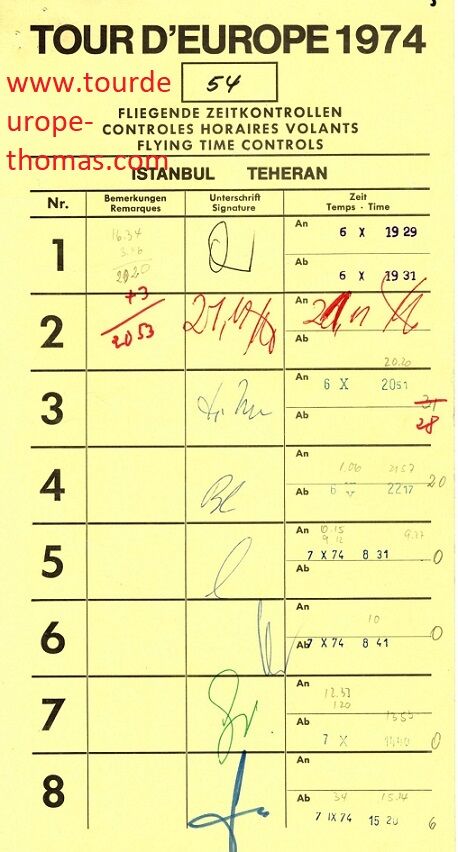 TOUR D'EUROPE 1974
www.tourde
urope-
thomas.com
54
FLIEGENDE ZEITKONTROLLEN
CONTROLES HORAIRES VOLANTS
FLYING TIME CONTROLS
ISTANBUL TEHERAN
Nr.
Bemerkungen
Remarques
Unterschrift
Signature
Zeit
Temps - Time
1
16.34
2020
An 6 X 19 29
Ab 6 X 19 31
2
+3
20 53
An
Ab
20.20
3
An 6 X 2051
Ab
21
28
4
An
1.06 2157
Ab 6 2217
20
5
An 0.15
9.12
9.27
7 X 74 8 31
0
Ab
6
An
10
Ab 7 X 74 8 41
0
7
An
12.33
1.20
13 53
Ab
7 X
0
8
An
Ab 34
7 IX 74 15 20
6